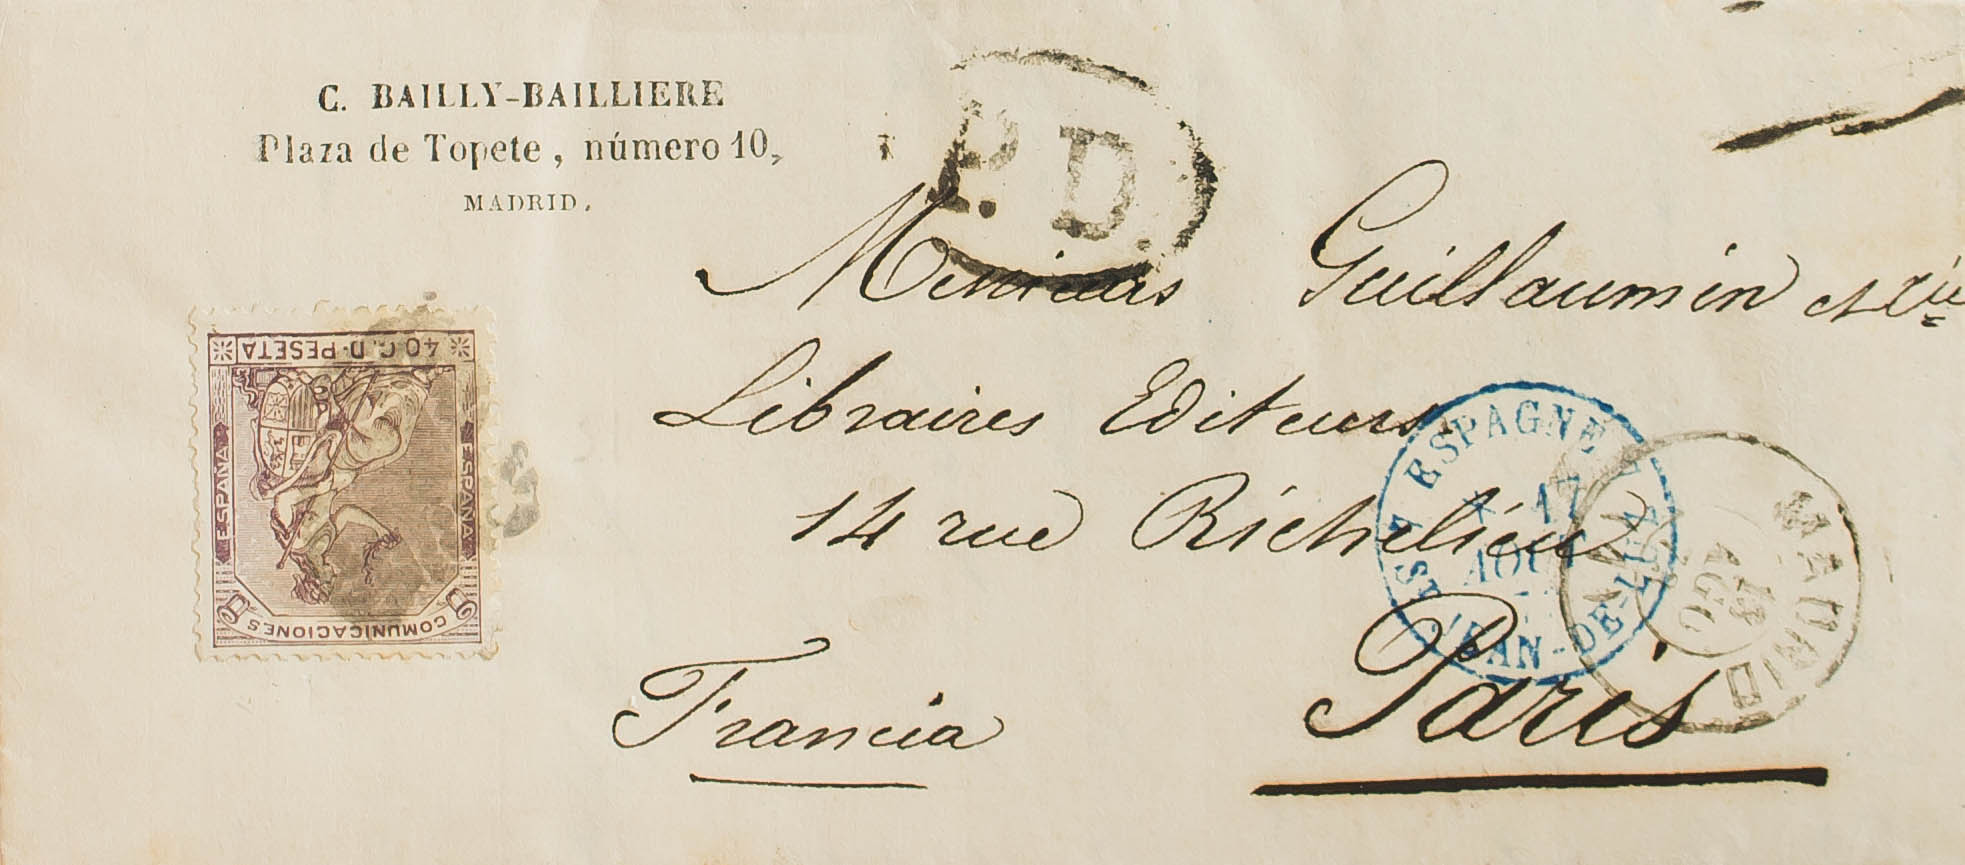 C. BAILLY-BAILLIERE
Plaza de Topete, número 10,
MADRID.
P.D.
Messieurs Guillaumin et Cie
Libraires Editeurs
14 rue Richelieu
Paris
Francia
40 C. D PESETA
ESPAÑA
ESPAÑA
COMUNICACIONES
ESPAGNE
17
AOUT
ST JEAN-DE-LUZ
MADRID
AGO